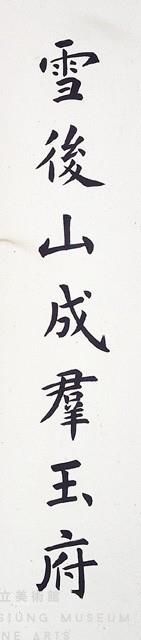 雪後山成羣玉府
立美術館
SIUNG MUSEUM
NE ARTS